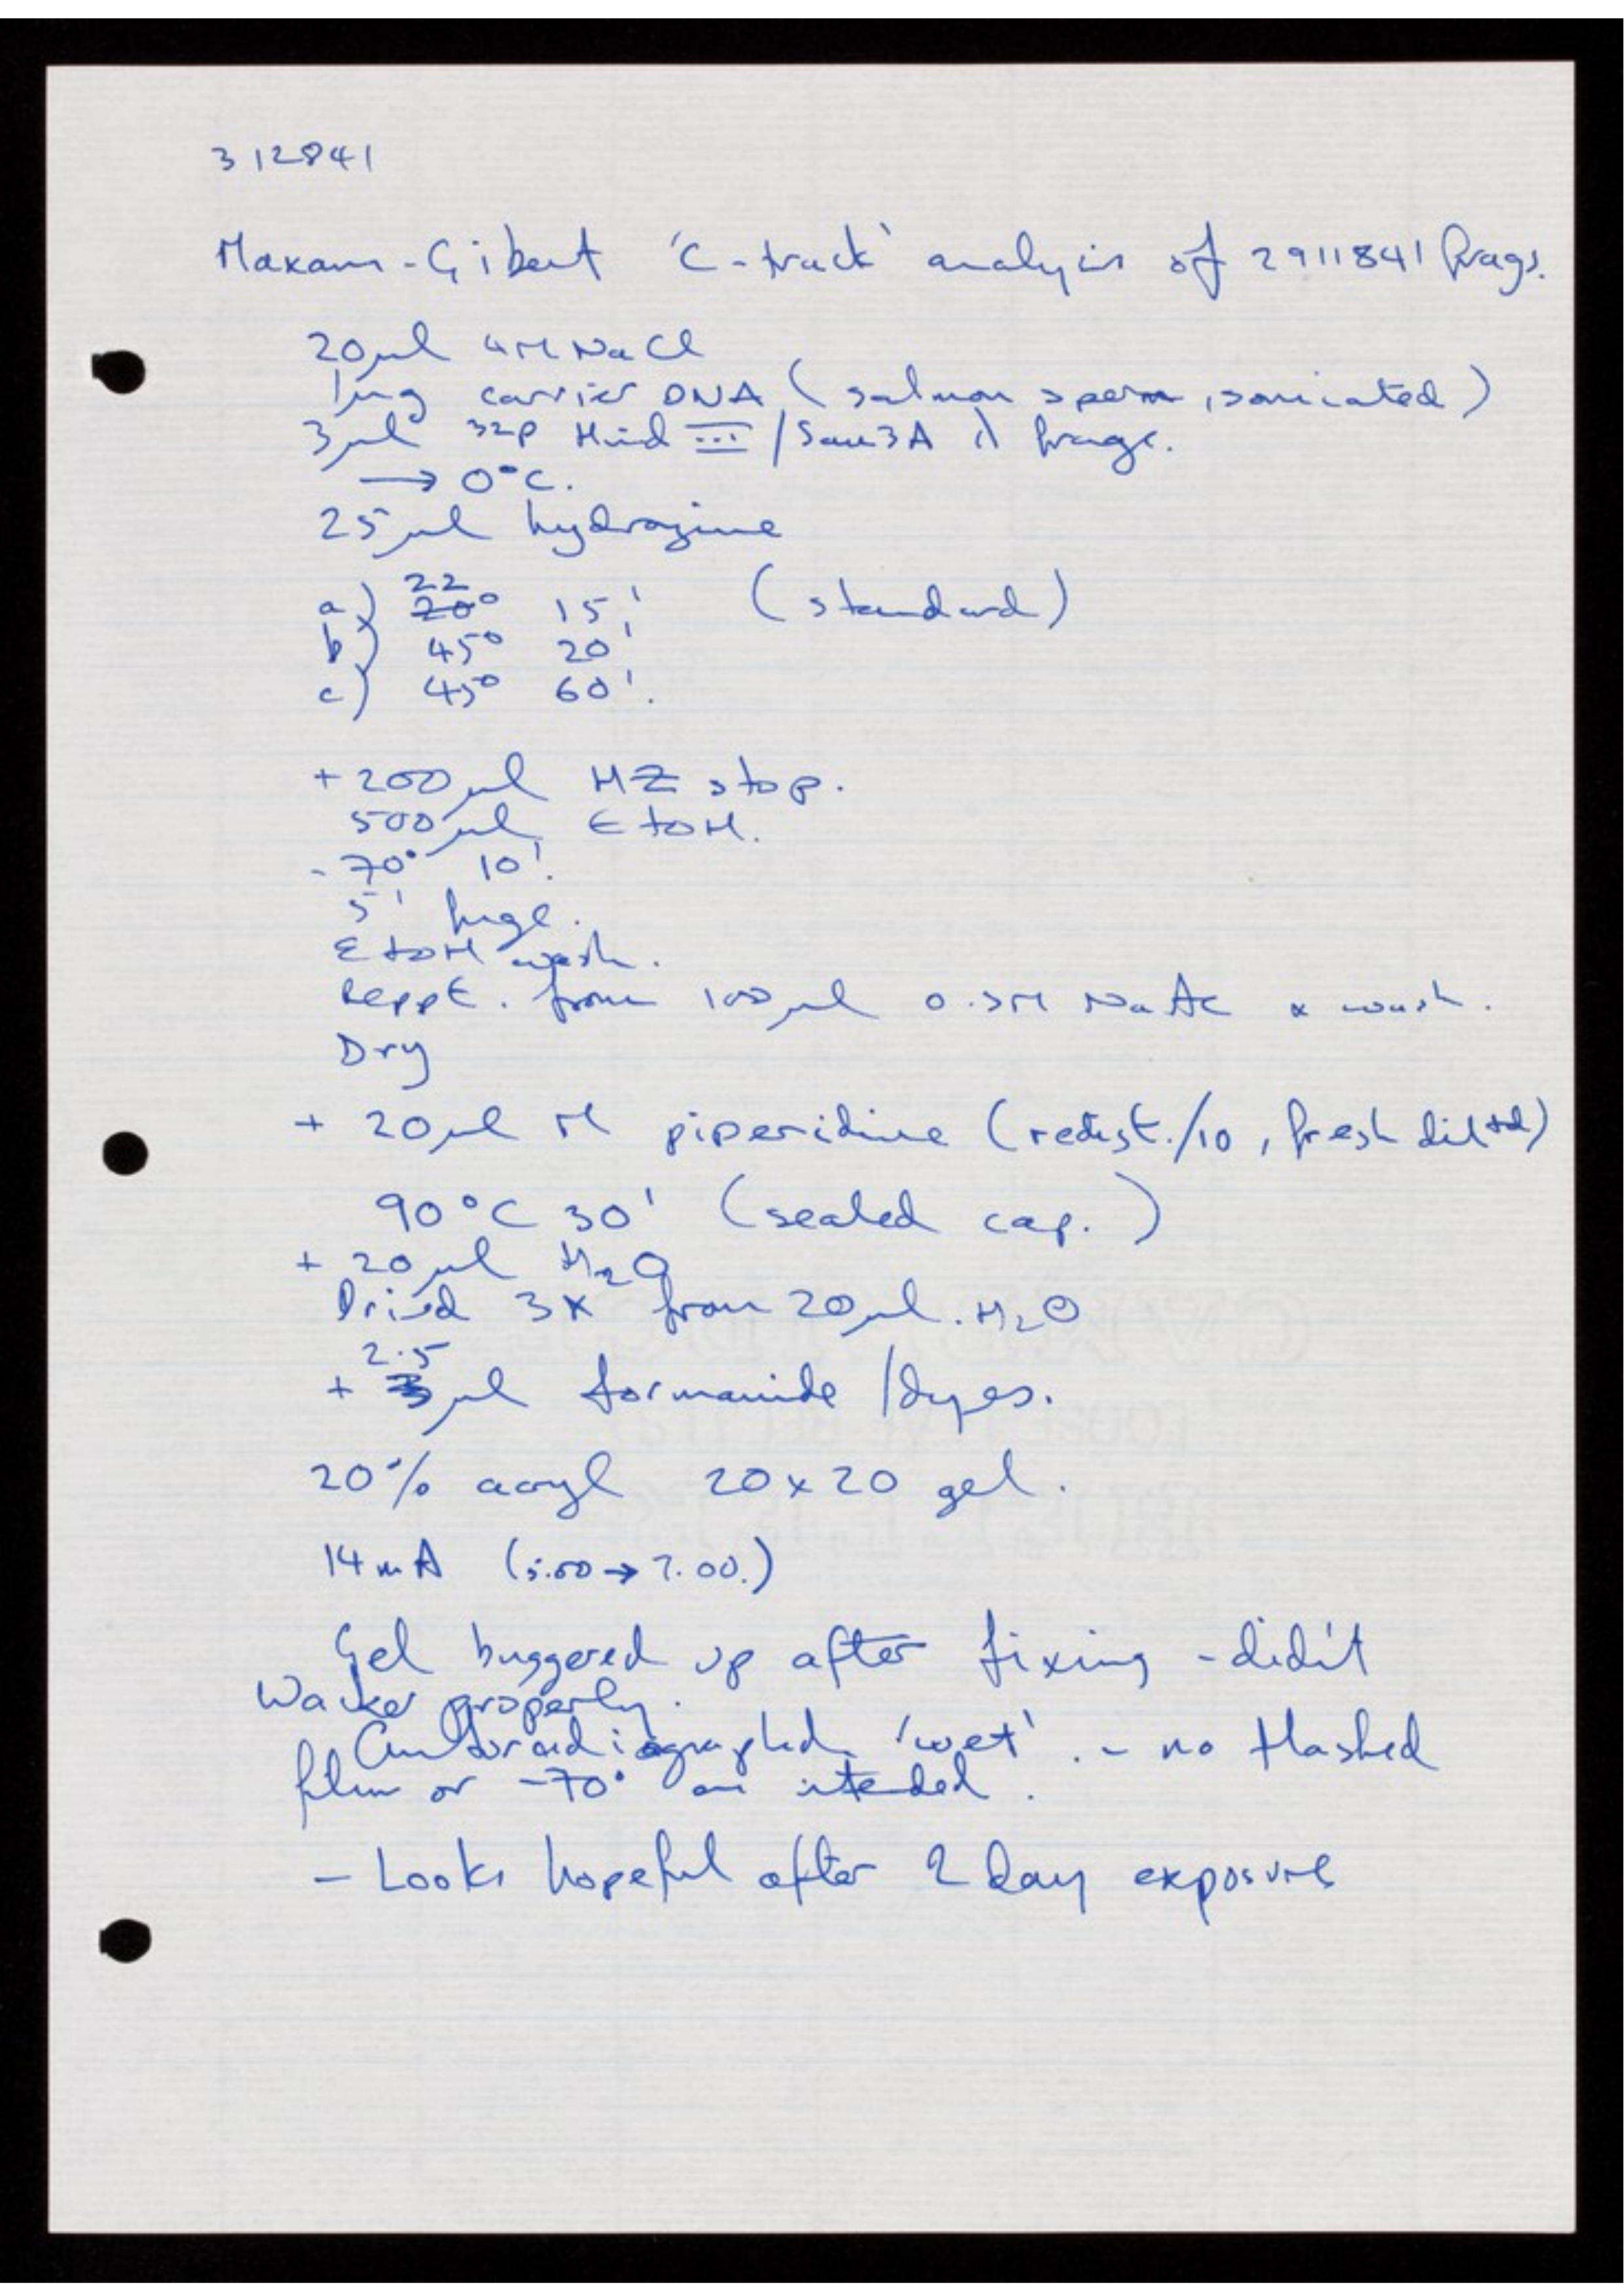 312841
Maxam-Gibert 'C-track' analysis of 2911841 frags.
20µl 4M NaCl
1µg carrier DNA (salmon sperm, sonicated)
3µl 32P Hind III/Sau3A λ frags.
→ 0°C.
25µl hydrazine
22
a) 20° 15' (standard)
b) 45° 20'
c) 45° 60'.
+ 200µl HZ stop.
500µl EtOH.
-70° 10'.
5' fuge.
EtOH wash.
Reppt. from 100µl 0.3M NaAc & wash.
Dry
+ 20µl M piperidine (redist./10, fresh diltd)
90°C 30' (sealed cap.)
+ 20µl H2O
Dried 3x from 20µl. H2O
2.5
+ 3µl formamide/dyes.
20% acryl 20x20 gel.
14mA (5.00 → 7.00.)
Gel buggered up after fixing - didn't
properly.
Autoradiographed 'wet'. - no flashed
film or -70° as intended.
- Looks hopeful after 2 day exposure